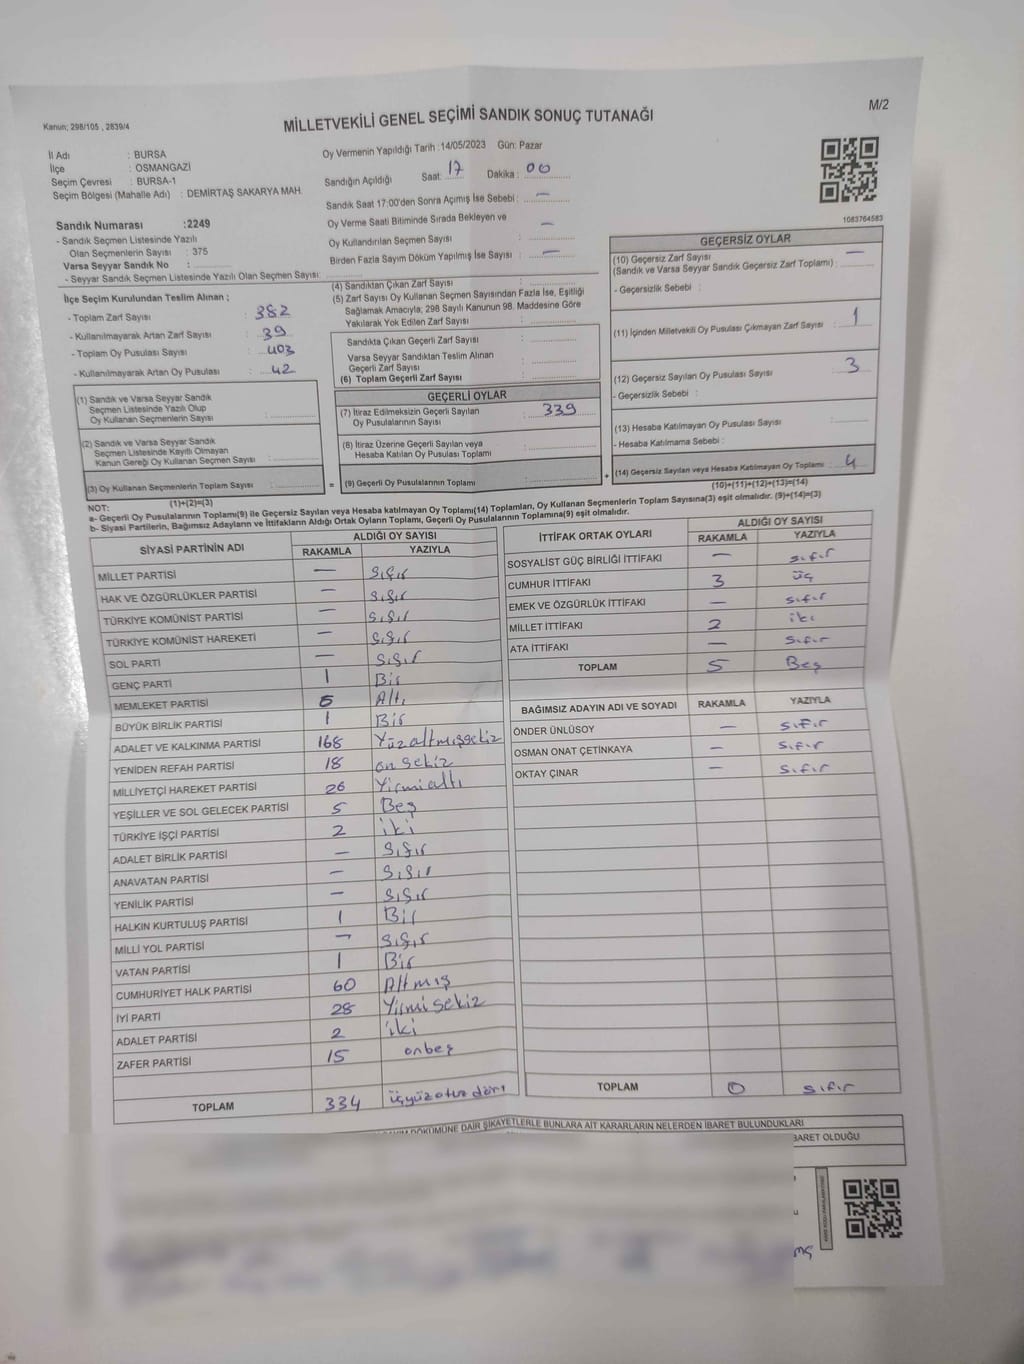 Kanun; 298/105 , 2839/4
MİLLETVEKİLİ GENEL SEÇİMİ SANDIK SONUÇ TUTANAĞI
M/2
İl Adı : BURSA
İlçe : OSMANGAZİ
Seçim Çevresi : BURSA-1
Seçim Bölgesi (Mahalle Adı) : DEMİRTAŞ SAKARYA MAH.
Oy Vermenin Yapıldığı Tarih :14/05/2023 Gün: Pazar
Sandığın Açıldığı Saat: 17 Dakika : 00
Sandık Saat 17:00'den Sonra Açımış İse Sebebi : —
Oy Verme Saati Bitiminde Sırada Bekleyen ve
Oy Kullandırılan Seçmen Sayısı : —
Birden Fazla Sayım Döküm Yapılmış İse Sayısı : —
1083764583
Sandık Numarası :2249
- Sandık Seçmen Listesinde Yazılı
Olan Seçmenlerin Sayısı : 375
Varsa Seyyar Sandık No :
- Seyyar Sandık Seçmen Listesinde Yazılı Olan Seçmen Sayısı:
İlçe Seçim Kurulundan Teslim Alınan ;
- Toplam Zarf Sayısı : 382
- Kullanılmayarak Artan Zarf Sayısı : 39
- Toplam Oy Pusulası Sayısı : 403
- Kullanılmayarak Artan Oy Pusulası : 42
(1) Sandık ve Varsa Seyyar Sandık
Seçmen Listesinde Yazılı Olup
Oy Kullanan Seçmenlerin Sayısı :
(2) Sandık ve Varsa Seyyar Sandık
Seçmen Listesinde Kayıtlı Olmayan
Kanun Gereği Oy Kullanan Seçmen Sayısı :
(3) Oy Kullanan Seçmenlerin Toplam Sayısı :
(1)+(2)=(3)
(4) Sandıktan Çıkan Zarf Sayısı :
(5) Zarf Sayısı Oy Kullanan Seçmen Sayısından Fazla İse, Eşitliği
Sağlamak Amacıyla; 298 Sayılı Kanunun 98. Maddesine Göre
Yakılarak Yok Edilen Zarf Sayısı :
Sandıkta Çıkan Geçerli Zarf Sayısı :
Varsa Seyyar Sandıktan Teslim Alınan
Geçerli Zarf Sayısı :
(6) Toplam Geçerli Zarf Sayısı :
GEÇERLİ OYLAR
(7) İtiraz Edilmeksizin Geçerli Sayılan
Oy Pusulalarının Sayısı : 339
(8) İtiraz Üzerine Geçerli Sayılan veya
Hesaba Katılan Oy Pusulası Toplamı :
= (9) Geçerli Oy Pusulalarının Toplamı : +
GEÇERSİZ OYLAR
(10) Geçersiz Zarf Sayısı : —
(Sandık ve Varsa Seyyar Sandık Geçersiz Zarf Toplamı)
- Geçersizlik Sebebi :
(11) İçinden Milletvekili Oy Pusulası Çıkmayan Zarf Sayısı : 1
(12) Geçersiz Sayılan Oy Pusulası Sayısı : 3
- Geçersizlik Sebebi :
(13) Hesaba Katılmayan Oy Pusulası Sayısı :
- Hesaba Katılmama Sebebi :
(14) Geçersiz Sayılan veya Hesaba Katılmayan Oy Toplamı : 4
(10)+(11)+(12)+(13)=(14)
NOT:
a- Geçerli Oy Pusulalarının Toplamı(9) ile Geçersiz Sayılan veya Hesaba katılmayan Oy Toplamı(14) Toplamları, Oy Kullanan Seçmenlerin Toplam Sayısına(3) eşit olmalıdır. (9)+(14)=(3)
b- Siyasi Partilerin, Bağımsız Adayların ve İttifakların Aldığı Ortak Oyların Toplamı, Geçerli Oy Pusulalarının Toplamına(9) eşit olmalıdır.
SİYASİ PARTİNİN ADI ALDIĞI OY SAYISI
RAKAMLA YAZIYLA
MİLLET PARTİSİ — Sıfır
HAK VE ÖZGÜRLÜKLER PARTİSİ — Sıfır
TÜRKİYE KOMÜNİST PARTİSİ — Sıfır
TÜRKİYE KOMÜNİST HAREKETİ — Sıfır
SOL PARTİ — Sıfır
GENÇ PARTİ 1 Bir
MEMLEKET PARTİSİ 6 Altı
BÜYÜK BİRLİK PARTİSİ 1 Bir
ADALET VE KALKINMA PARTİSİ 168 Yüzaltmışsekiz
YENİDEN REFAH PARTİSİ 18 onsekiz
MİLLİYETÇİ HAREKET PARTİSİ 26 Yirmialtı
YEŞİLLER VE SOL GELECEK PARTİSİ 5 Beş
TÜRKİYE İŞÇİ PARTİSİ 2 iki
ADALET BİRLİK PARTİSİ — Sıfır
ANAVATAN PARTİSİ — Sıfır
YENİLİK PARTİSİ — Sıfır
HALKIN KURTULUŞ PARTİSİ 1 Bir
MİLLİ YOL PARTİSİ — Sıfır
VATAN PARTİSİ 1 Bir
CUMHURİYET HALK PARTİSİ 60 Altmış
İYİ PARTİ 28 Yirmisekiz
ADALET PARTİSİ 2 iki
ZAFER PARTİSİ 15 onbeş
TOPLAM 334 üçyüzotuzdört
İTTİFAK ORTAK OYLARI ALDIĞI OY SAYISI
RAKAMLA YAZIYLA
SOSYALİST GÜÇ BİRLİĞİ İTTİFAKI — sıfır
CUMHUR İTTİFAKI 3 üç
EMEK VE ÖZGÜRLÜK İTTİFAKI — sıfır
MİLLET İTTİFAKI 2 iki
ATA İTTİFAKI — sıfır
TOPLAM 5 Beş
BAĞIMSIZ ADAYIN ADI VE SOYADI RAKAMLA YAZIYLA
ÖNDER ÜNLÜSOY — sıfır
OSMAN ONAT ÇETİNKAYA — sıfır
OKTAY ÇINAR — sıfır
TOPLAM 0 sıfır
DÖKÜMÜNE DAİR ŞİKAYETLERLE BUNLARA AİT KARARLARIN NELERDEN İBARET BULUNDUKLARI
BARET OLDUĞU